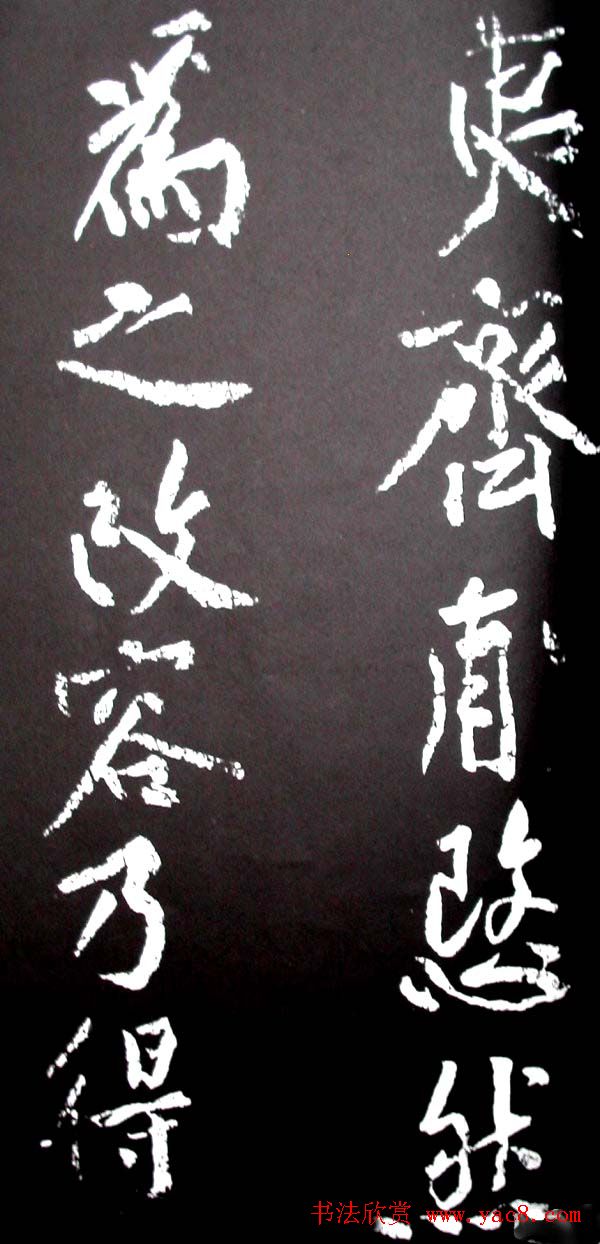 齊愍然
爲之改容乃得
书法欣赏 www.yac8.com